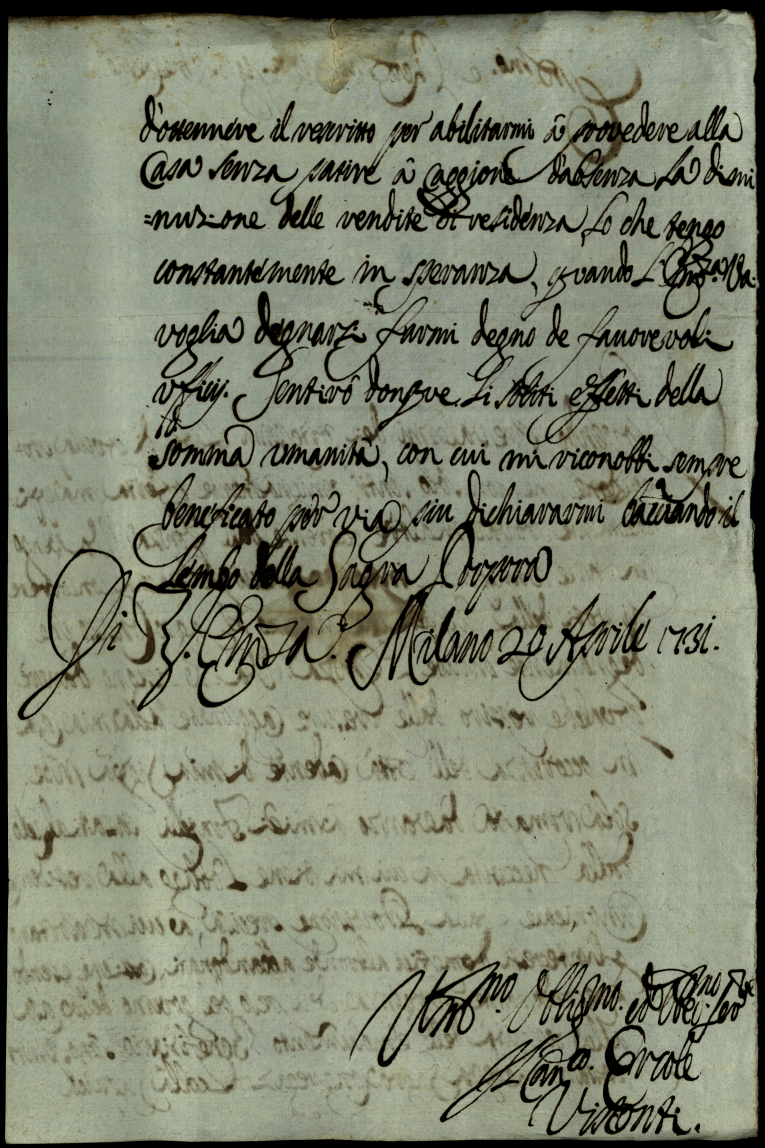 d'ottennere il rescritto per abilitarmi â provedere alla
Casa senza patire â caggione d'absenza La dimi
=nuzione delle vendite di residenza, Lo che tengo
constantemente in speranza, quando L'Emza. Va.
voglia degnarsi farmi degno de favorevoli
vfficij. Sentirò donque Li soliti effetti della
somma vmanità, con cui mi riconobbi sempre
beneficato per via piu dichiararmi bacciando il
Lembo della Sagra Porpora
Di V. Emza. Milano 29 Aprile 1731.
Vmmo. Obbligmo. ed Obbedmo. Serre
Canco. Ercole
Visconti.